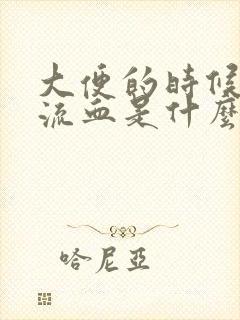 大便的時候
流血是什麼
哈尼亞